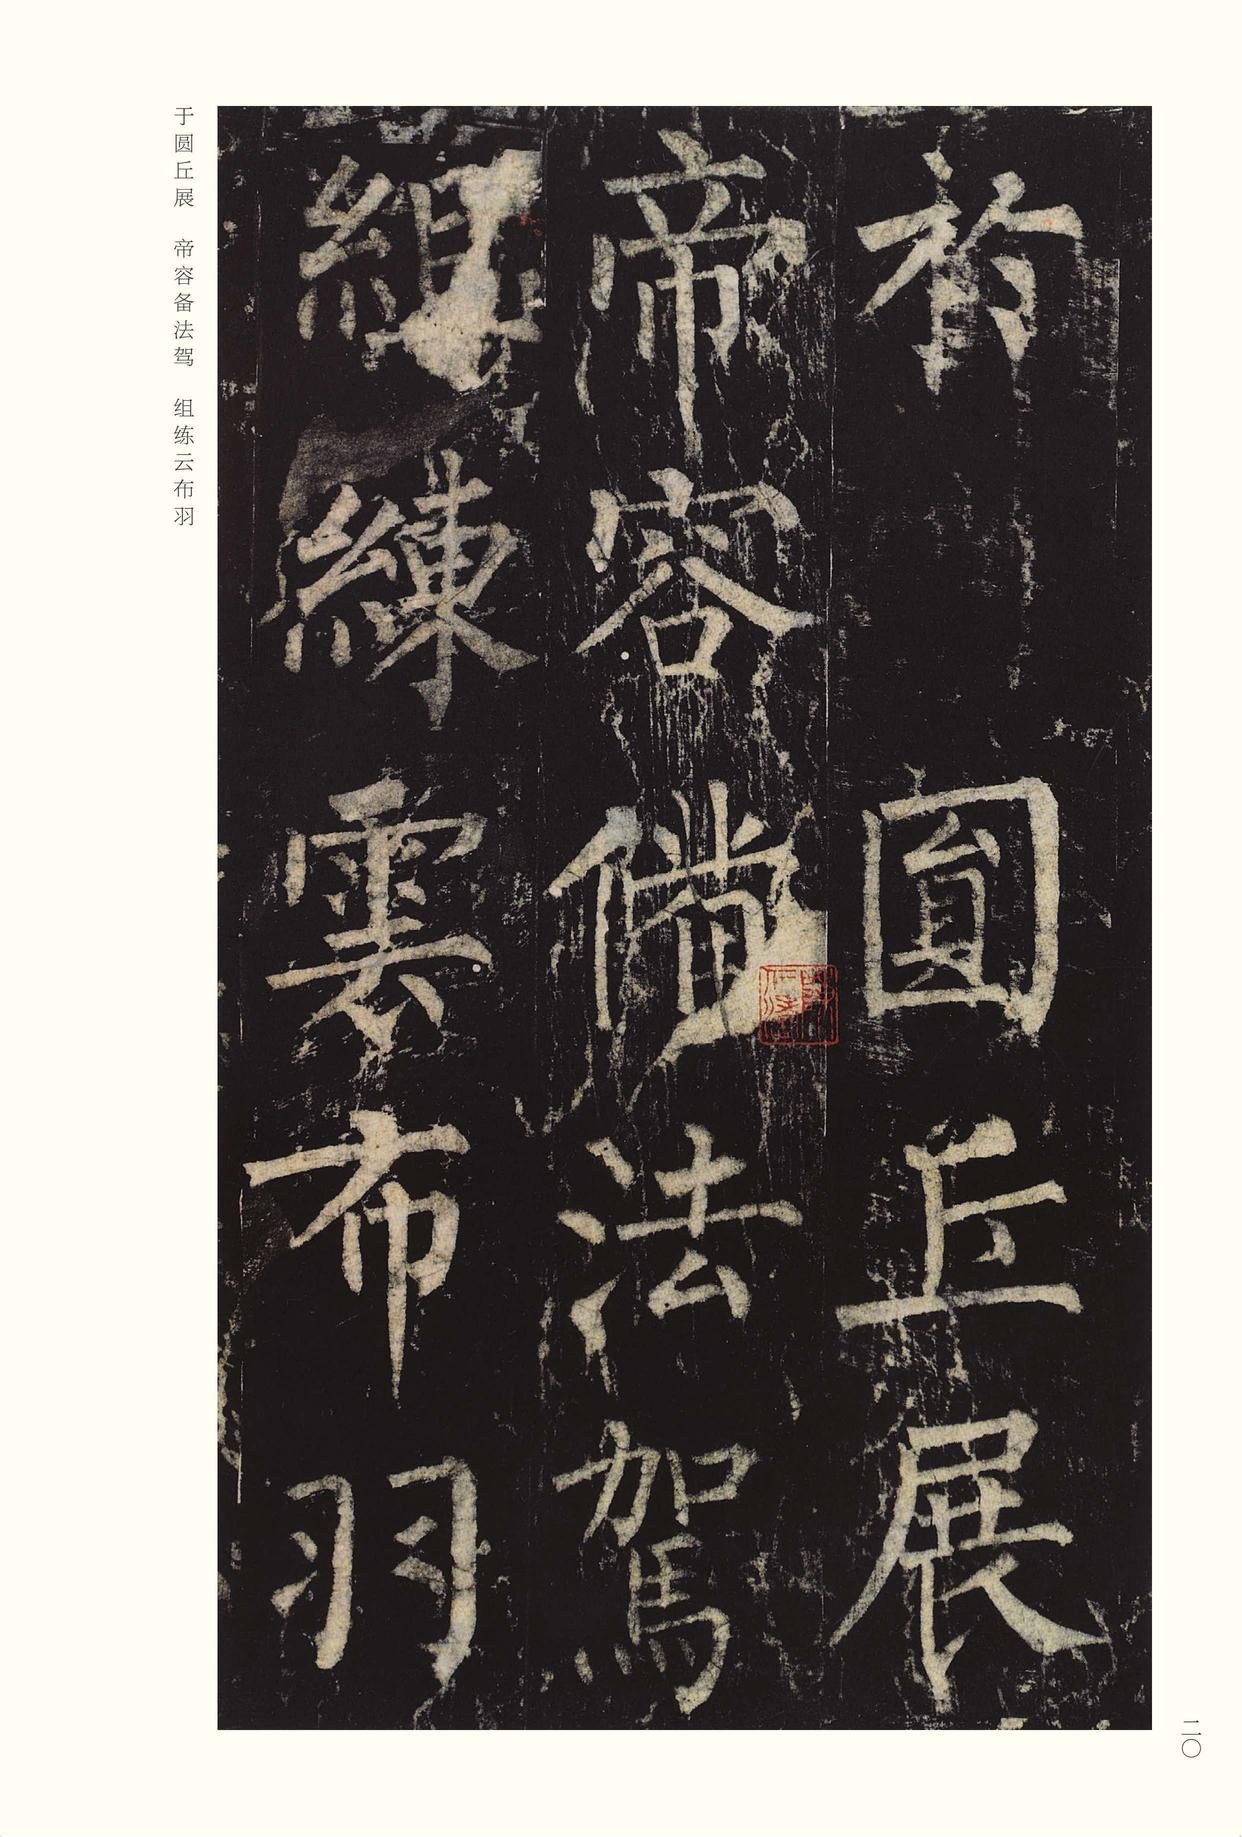 於 圓丘展
帝容備法駕
組練雲布羽
于圆丘展 帝容备法驾 组练云布羽
二〇